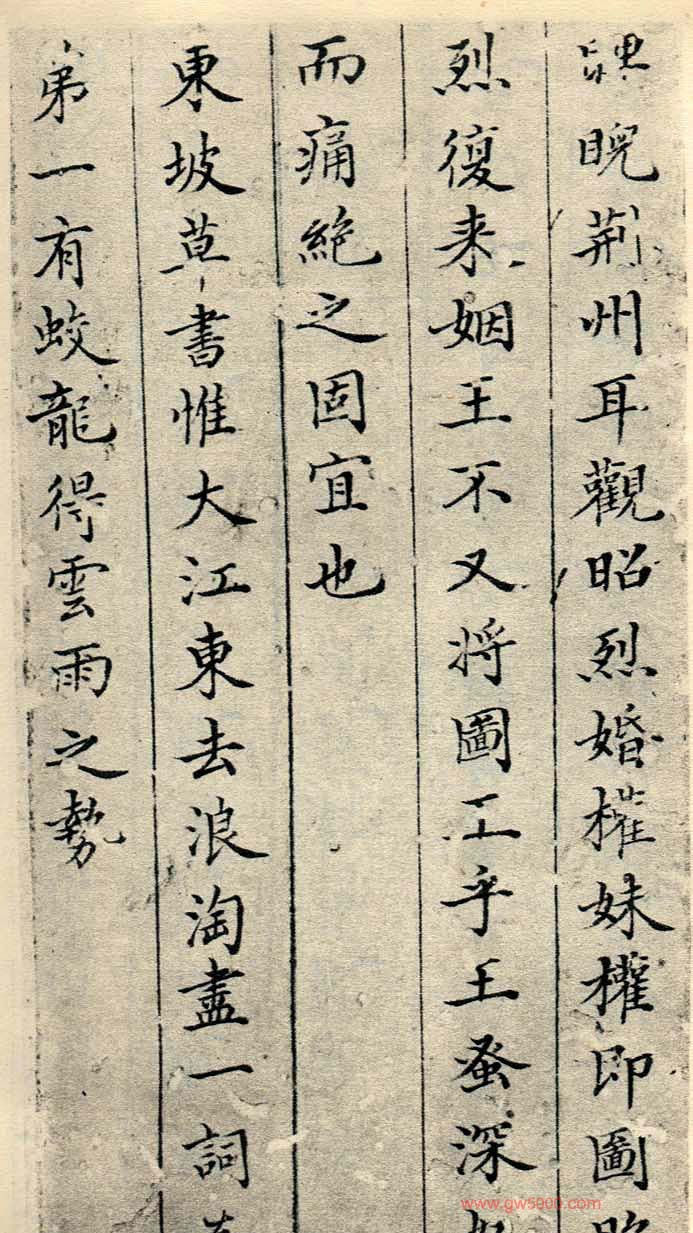 睨荆州耳觀昭烈婚權妹權即圖
烈復来姻王不又将圖工乎王蚤深
而痛絶之固宜也
東坡草書惟大江東去浪淘盡一詞
弟一有蛟龍得雲雨之勢
www.gw5000.com